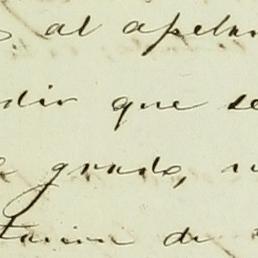 al apelan
dir que se
grado,
tacion de